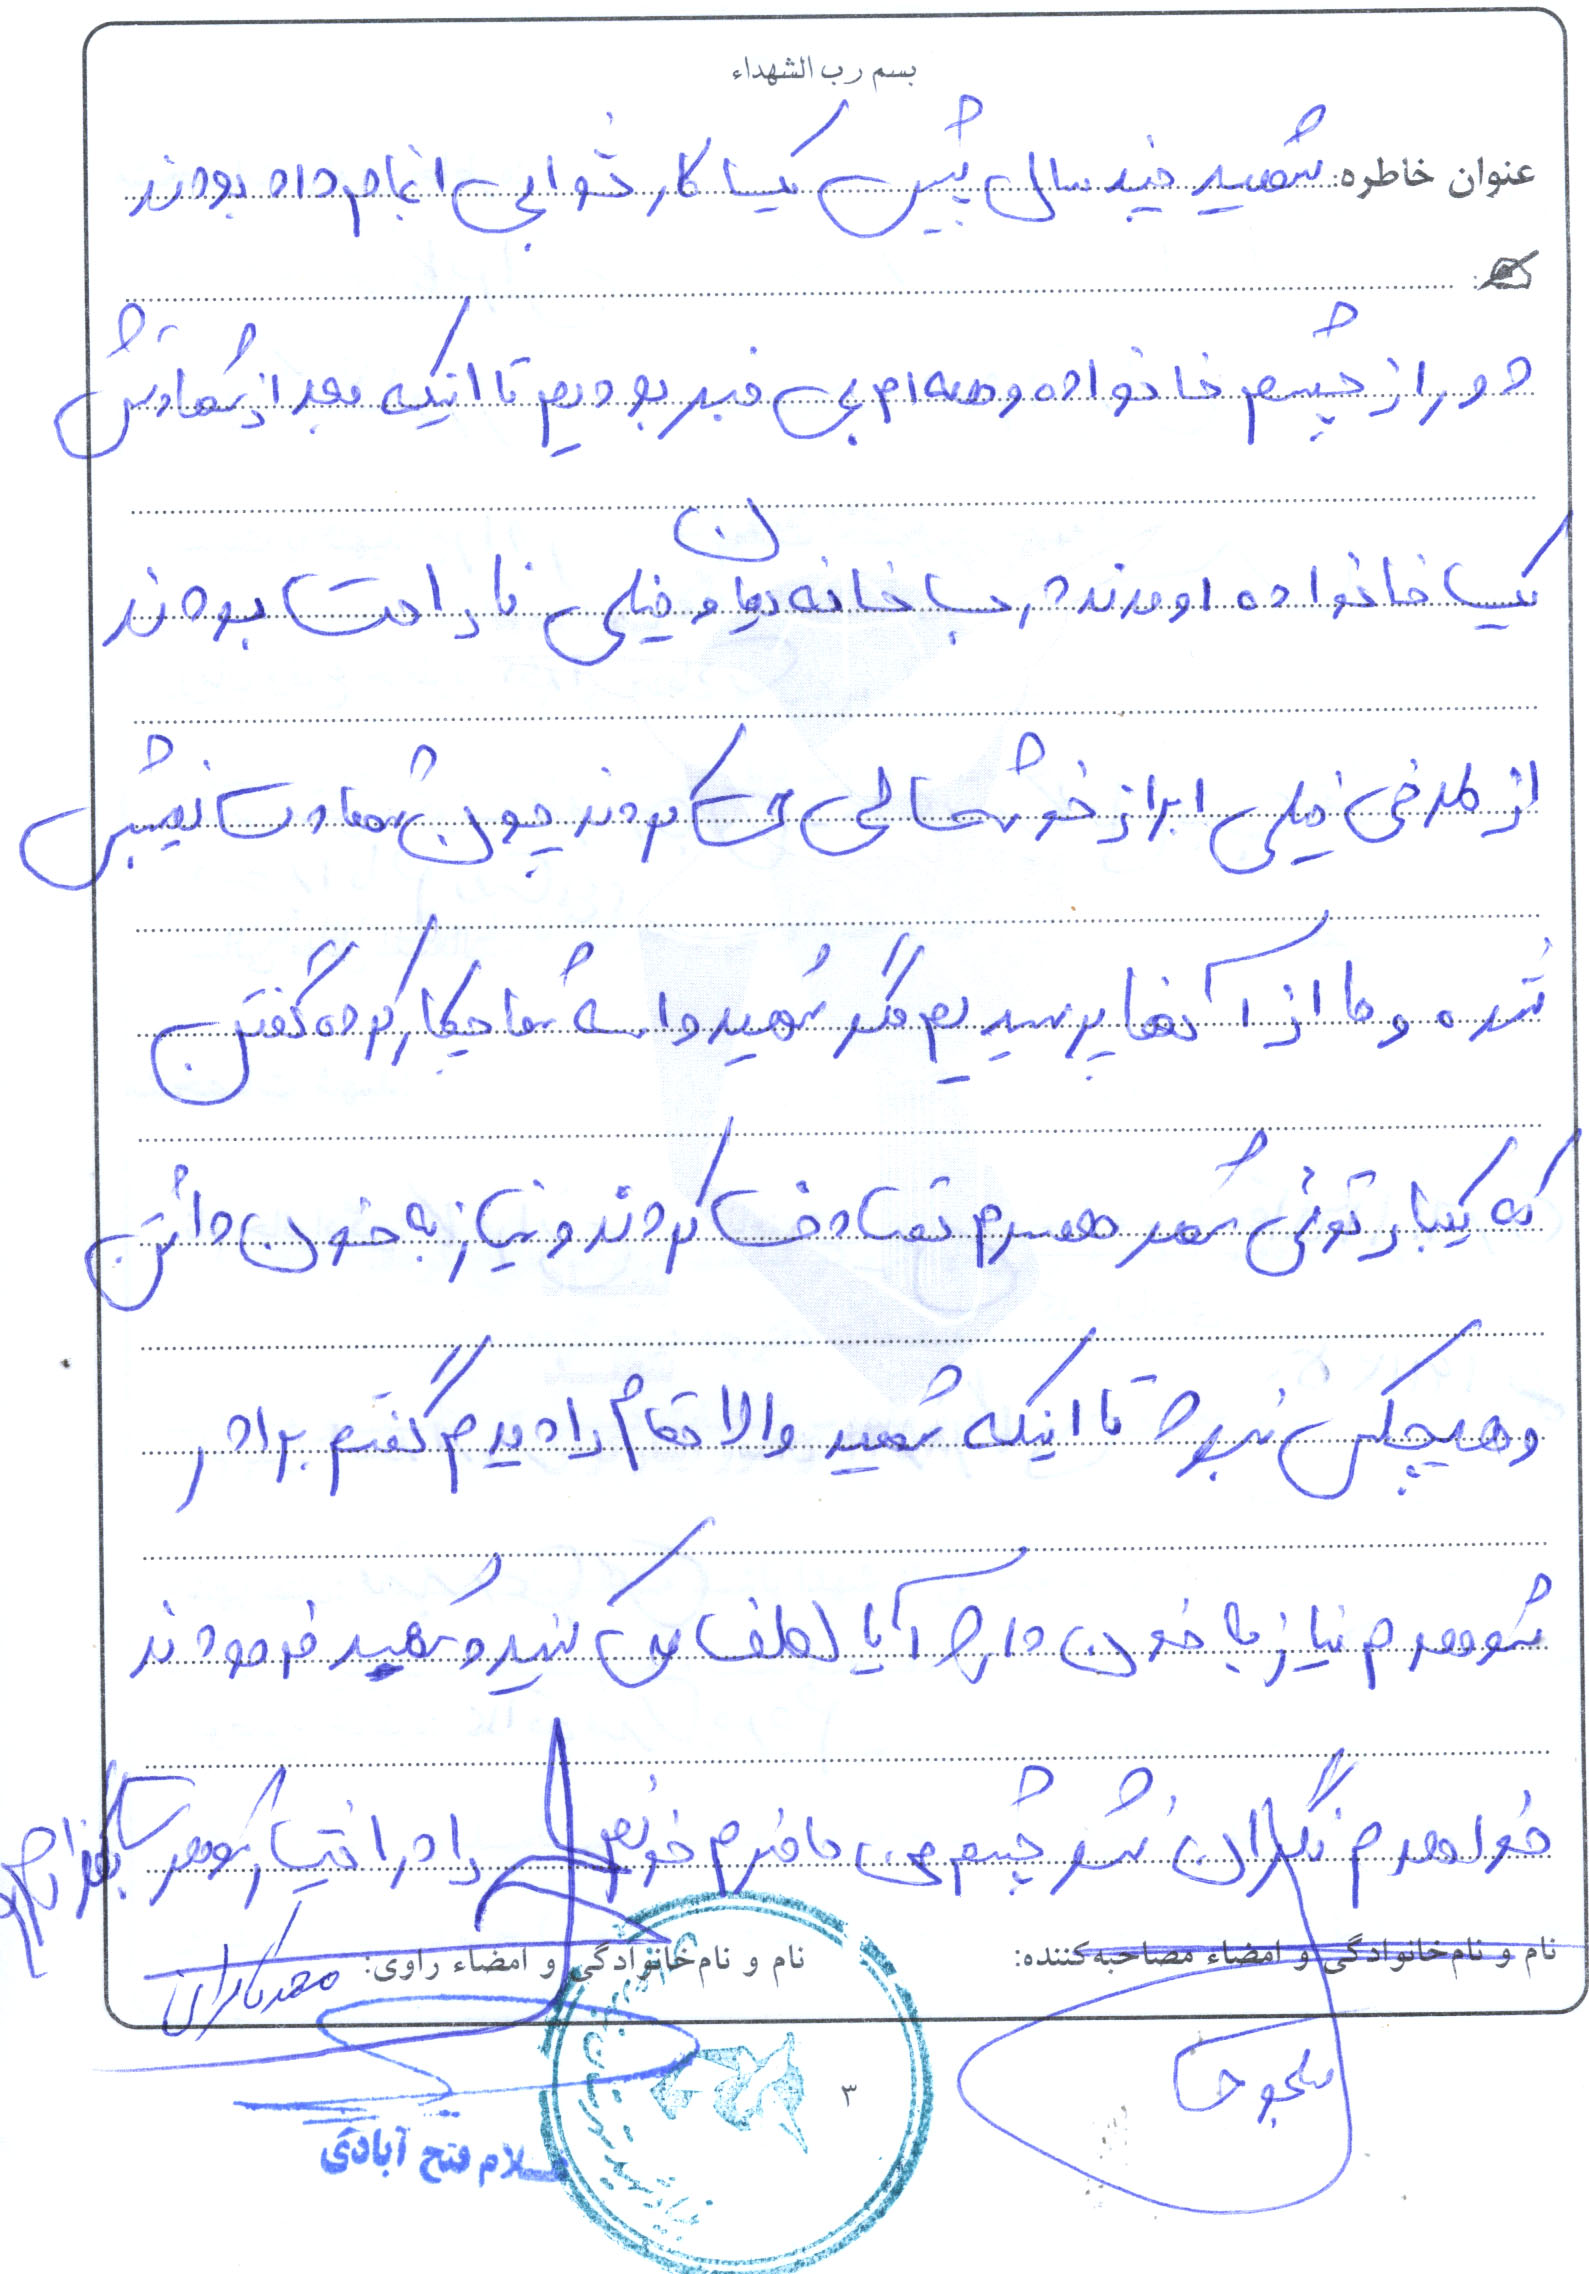 بسم رب الشهداء
عنوان خاطره: شهید چند سال پیش یکسا کار ثوابی انجام داده بودند
دور از چشم خانواده و همه ام بی خبر بودیم تا اینکه بعد از شهادتش
یکسا خانواده اومدند درب خانه یمان و خیلی ناراحت بودند
از طرفی خیلی ابراز خوشحالی می کردند چون شهادت نصیبش
شده و ما از آنها پرسیدیم مگر شهید واسه شما چیکار کرده گفتن
که یکبار توئی شهر همسرم تصادف کردند و نیاز به خون داشتن
و هیچکس نبود تا اینکه شهید والا مقام را دیدم گفتم برادر
شوهرم نیاز با خون دارد آیا لطف می کنید و شهید فرمودند
خواهرم نگران نشو چشم من حاضرم خونم را در اختیار شوهر بگذارم
نام و نام‌خانوادگی و امضاء مصاحبه‌کننده:
نام و نام‌خانوادگی و امضاء راوی:
۳
سلام فتح آبادی